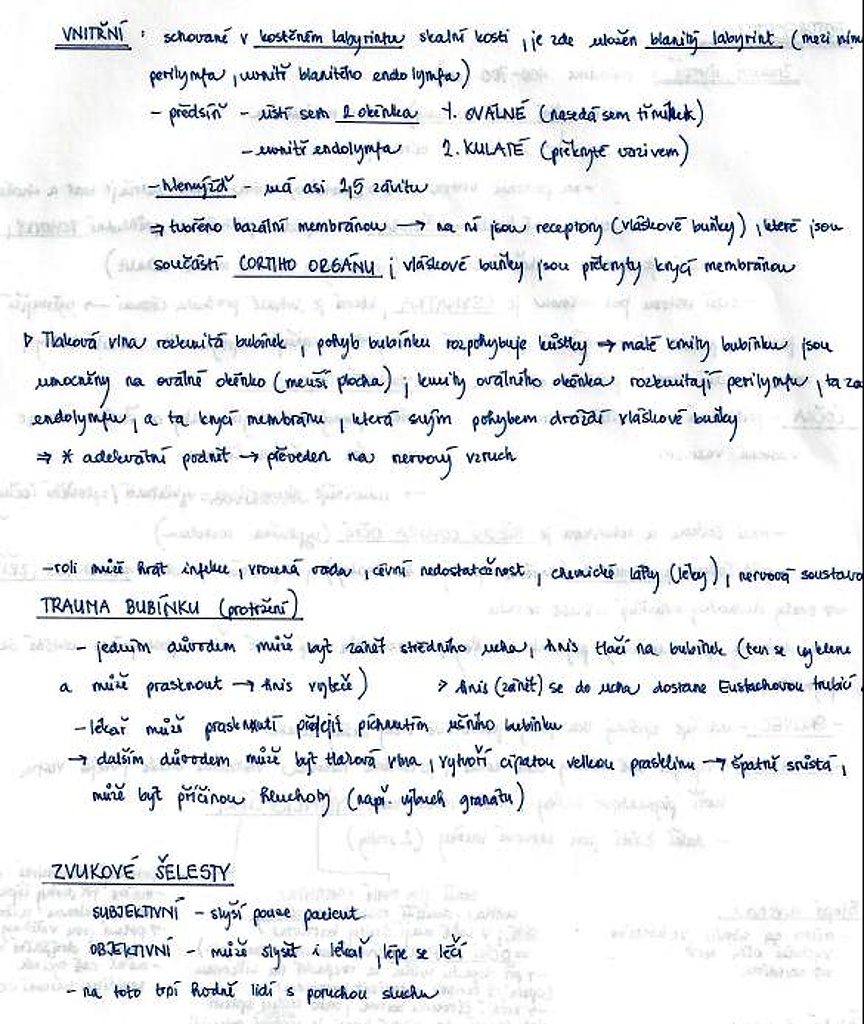 VNITŘNÍ : schované v kostěném labyrintu skalní kosti , je zde uložen blanitý labyrint (mezi ním
perilymfa , uvnitř blanitého endolymfa)
- předsíň - ústí sem 2 okénka 1. OVÁLNÉ (nasedá sem třmínek)
- uvnitř endolymfa 2. KULATÉ (překryté vazivem)
- hlemýžď - má asi 2,5 závitu
⇒ tvořeno bazální membránou → na ní jsou receptory (vláskové buňky) , které jsou
součástí CORTIHO ORGÁNU ; vláskové buňky jsou překryty krycí membránou
▷ Tlaková vlna rozkmitá bubínek , pohyb bubínku rozpohybuje kůstky → malé kmity bubínku jsou
umocněny na oválné okénko (menší plocha) ; kmity oválného okénka rozkmitají perilymfu , ta za
endolymfu , a ta krycí membránu , která svým pohybem dráždí vláskové buňky
⇒ * adekvátní podnět → převeden na nervový vzruch
- roli může hrát infekce , vrozená vada , cévní nedostatečnost , chemické látky (léky) , nervová soustava
TRAUMA BUBÍNKU (protržení)
- jedním důvodem může být zánět středního ucha , hnis tlačí na bubínek (ten se vyklene
a může prasknout → hnis vyteče) > hnis (zánět) se do ucha dostane Eustachovou trubicí .
- lékař může prasknutí předejít píchnutím ušního bubínku
→ dalším důvodem může být tlaková vlna , vytvoří cípatou velkou prasklinu → špatně srůstá ,
může být příčinou hluchoty (např. výbuch granátu)
ZVUKOVÉ ŠELESTY
SUBJEKTIVNÍ - slyší pouze pacient
OBJEKTIVNÍ - může slyšet i lékař , lépe se léčí
- na toto trpí hodně lidí s poruchou sluchu